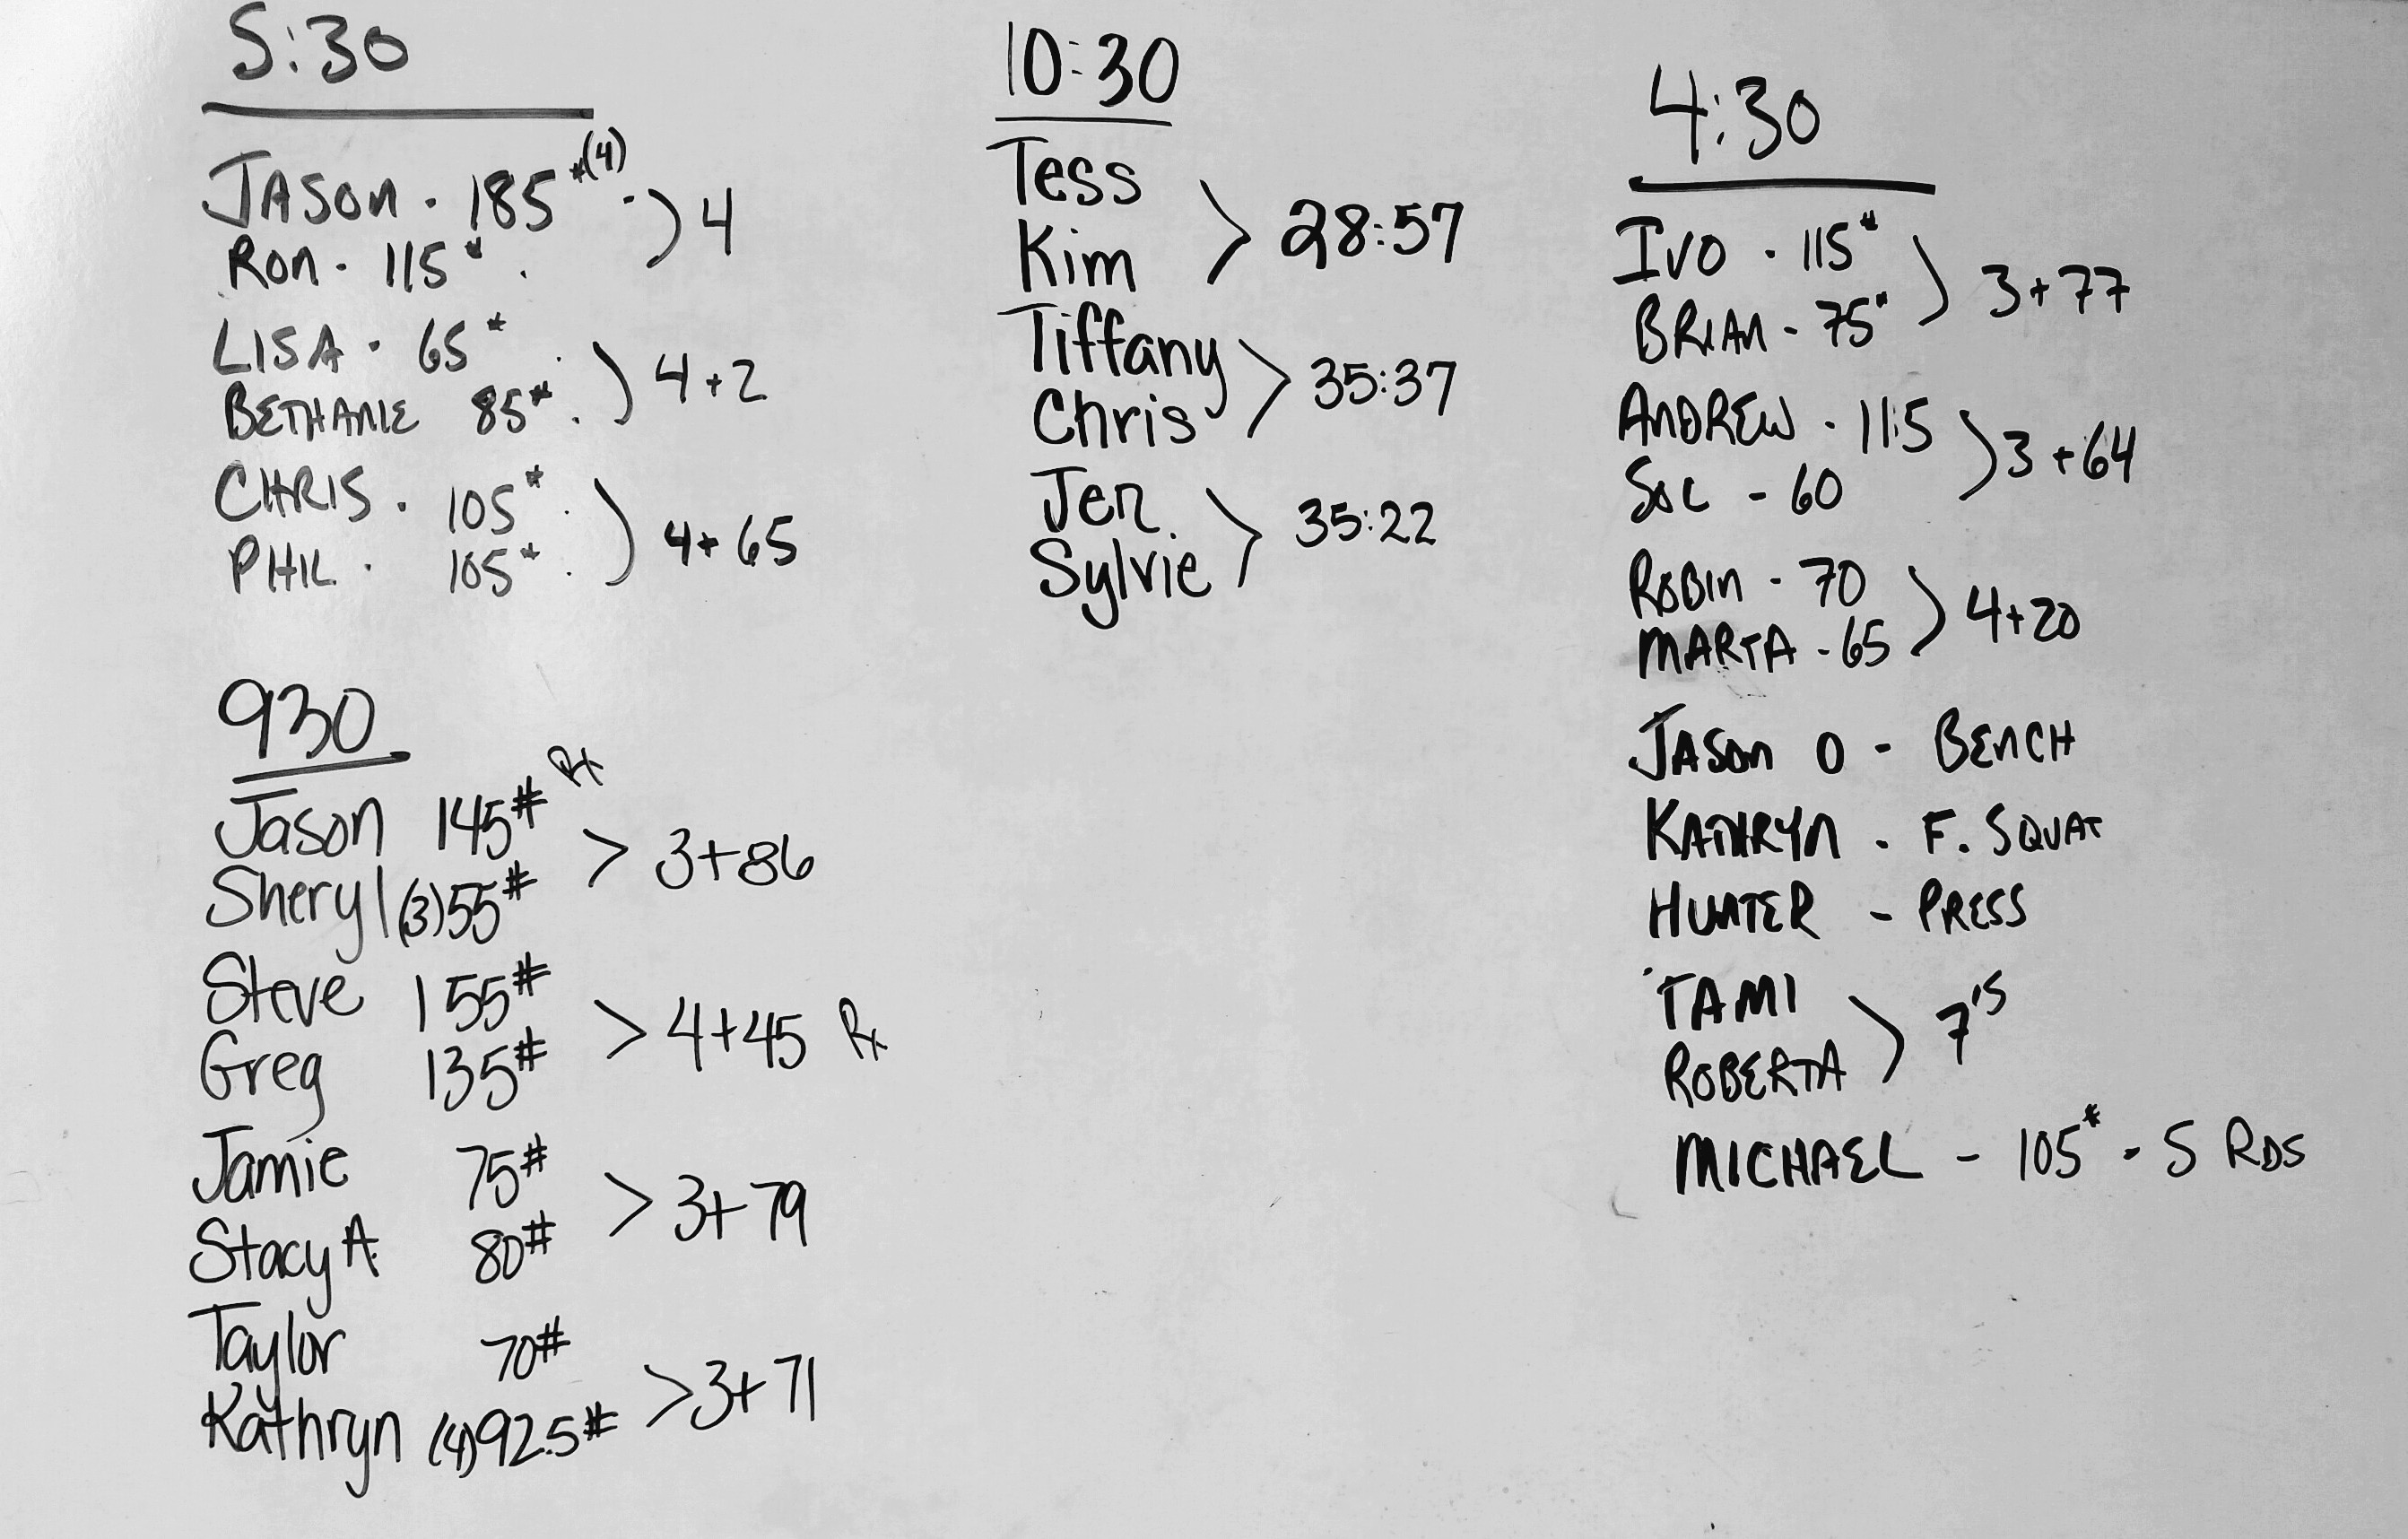 5:30
JASON . 185#(4) . ) 4
RON . 115# .
LISA . 65# . ) 4+2
BETHANIE 85# .
CHRIS . 105# . ) 4+65
PHIL . 105# .
930
Jason 145# Rx > 3+86
Sheryl (3)55#
Steve 155# > 4+45 Rx
Greg 135#
Jamie 75# > 3+79
Stacy A. 80#
Taylor 70# > 3+71
Kathryn (4)92.5#
10:30
Tess > 28:57
Kim
Tiffany > 35:37
Chris
Jen > 35:22
Sylvie
4:30
IVO . 115# ) 3+77
BRIAN - 75#
ANDREW . 115 ) 3+64
- 60
ROBIN - 70 ) 4+20
MARTA - 65
JASON O - BENCH
KATHRYN . F. SQUAT
HUNTER - PRESS
TAMI > 7's
ROBERTA
MICHAEL - 105# - 5 RDS